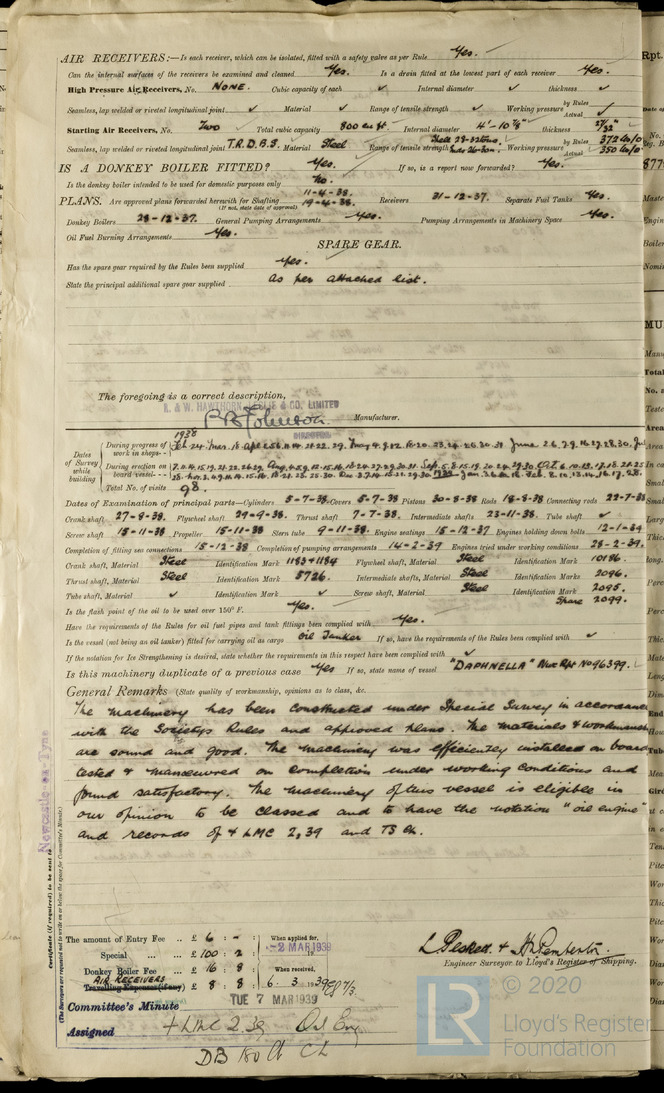 AIR RECEIVERS:—Is each receiver, which can be isolated, fitted with a safety valve as per Rule Yes.
Can the internal surfaces of the receivers be examined and cleaned Yes. Is a drain fitted at the lowest part of each receiver Yes.
High Pressure Air Receivers, No. NONE. Cubic capacity of each ✓ Internal diameter ✓ thickness ✓
Seamless, lap welded or riveted longitudinal joint ✓ Material ✓ Range of tensile strength ✓ Working pressure by Rules Actual ✓
Starting Air Receivers, No. Two Total cubic capacity 800 cu ft. Internal diameter 4'-10 7/8" thickness 27/32"
Seamless, lap welded or riveted longitudinal joint T.R.D.B.S. Material Steel Range of tensile strength Shell 28-32 tons. Ends 26-30 Working pressure by Rules 372 lb/□" Actual 350 lb/□"
IS A DONKEY BOILER FITTED? Yes. If so, is a report now forwarded? Yes.
Is the donkey boiler intended to be used for domestic purposes only No.
PLANS. Are approved plans forwarded herewith for Shafting 11-4-38. 19-4-38. Receivers 31-12-37. Separate Fuel Tanks Yes.
(If not, state date of approval)
Donkey Boilers 28-12-37. General Pumping Arrangements Yes. Pumping Arrangements in Machinery Space Yes.
Oil Fuel Burning Arrangements Yes.
SPARE GEAR.
Has the spare gear required by the Rules been supplied Yes.
State the principal additional spare gear supplied as per attached list.
The foregoing is a correct description,
R. & W. HAWTHORN, LESLIE & CO., LIMITED
R B Johnston Manufacturer.
DIRECTOR
Dates of Survey while building
During progress of work in shops
1938
During erection on board vessel
Total No. of visits 98.
Dates of Examination of principal parts—Cylinders 5-7-38. Covers 5-7-38 Pistons 30-8-38 Rods 18-8-38 Connecting rods 22-7-38
Crank shaft 27-8-38. Flywheel shaft 29-9-38. Thrust shaft 7-7-38. Intermediate shafts 23-11-38. Tube shaft ✓
Screw shaft 15-11-38 Propeller 15-11-38 Stern tube 9-11-38. Engine seatings 15-12-37 Engines holding down bolts 12-1-39
Completion of fitting sea connections 15-12-38 Completion of pumping arrangements 14-2-39 Engines tried under working conditions 28-2-39.
Crank shaft, Material Steel Identification Mark 1183 & 1184 Flywheel shaft, Material Steel Identification Mark 10186.
Thrust shaft, Material Steel Identification Mark 5726. Intermediate shafts, Material Steel Identification Marks 2096.
Tube shaft, Material ✓ Identification Mark ✓ Screw shaft, Material Steel Identification Mark 2095. Spare 2099.
Is the flash point of the oil to be used over 150° F. Yes.
Have the requirements of the Rules for oil fuel pipes and tank fittings been complied with Yes.
Is the vessel (not being an oil tanker) fitted for carrying oil as cargo Oil Tanker If so, have the requirements of the Rules been complied with ✓
If the notation for Ice Strengthening is desired, state whether the requirements in this respect have been complied with ✓
Is this machinery duplicate of a previous case Yes If so, state name of vessel "DAPHNELLA" Nwc Rpt No 96399.
General Remarks (State quality of workmanship, opinions as to class, &c.
The machinery has been constructed under Special Survey in accordance
with the Society's Rules and approved plans. The materials & workmanship
are sound and good. The machinery was efficiently installed on board
tested & manœuvred on completion under working conditions and
found satisfactory. The machinery of this vessel is eligible in
our opinion to be classed and to have the notation "oil engine"
and records of + LMC 2,39 and TS CL.
Newcastle-on-Tyne
Certificate (if required) to be sent to
(The Surveyors are requested not to write on or below the space for Committee's Minute.)
The amount of Entry Fee .. £ 6 : - : When applied for,
Special ... £ 100 : 2 : -2 MAR 1939
Donkey Boiler Fee ... £ 16 : 8 : When received,
AIR RECEIVERS
Travelling Expenses (if any) £ 8 : 8 : 6. 3. 1939
L Peskett & H Pemberton.
Engineer Surveyor to Lloyd's Register of Shipping.
Committee's Minute TUE 7 MAR 1939
Assigned + LMC 2.39 Oil Eng
DB 180 lb CL
© 2020
LR
Lloyd's Register
Foundation